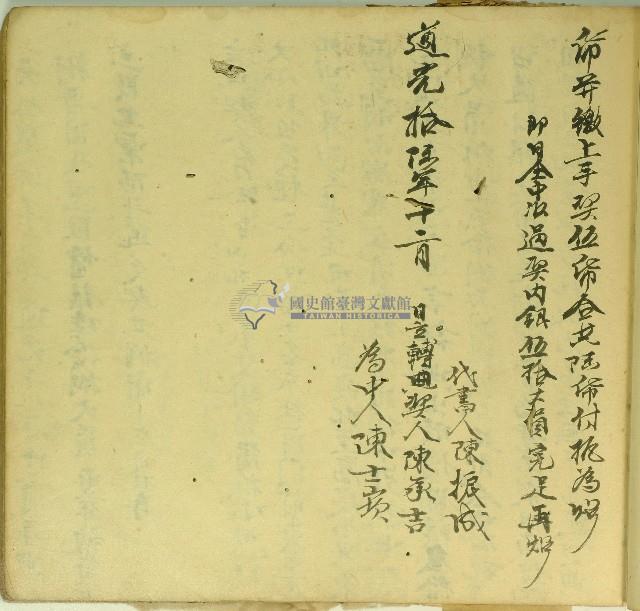 紙并繳上手契伍紙合共陸紙付執為炤
即日仝中收過契內銀伍拾大員完足再炤
代書人陳振成
道光拾陸年十二月 日立轉典契人陳承吉
為中人陳士
國史館臺灣文獻館
TAIWAN HISTORICA